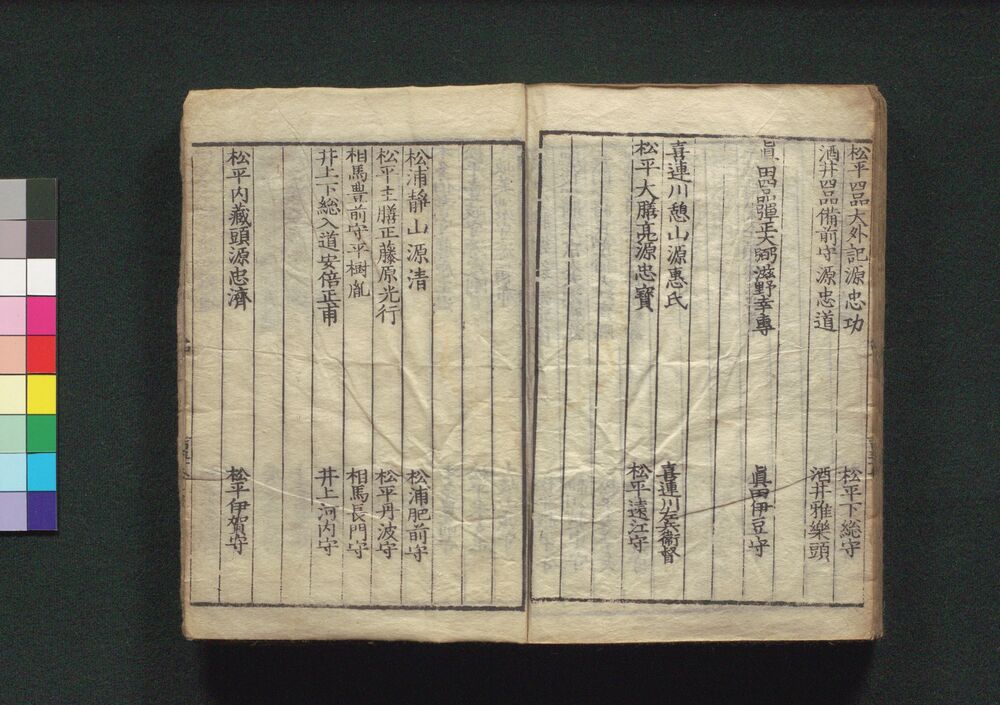 松平四品大外記源忠功
松平下総守
酒井四品備前守源忠道
酒井雅樂頭
眞田四品彈正大弼滋野幸專
眞田伊豆守
喜連川憩山源惠氏
喜連川左兵衛督
松平大膳亮源忠寳
松平遠江守
松浦靜山源清
松浦肥前守
松平主膳正藤原光行
松平丹波守
相馬豊前守平樹胤
相馬長門守
井上下総入道安倍正甫
井上河内守
松平内藏頭源忠濟
松平伊賀守